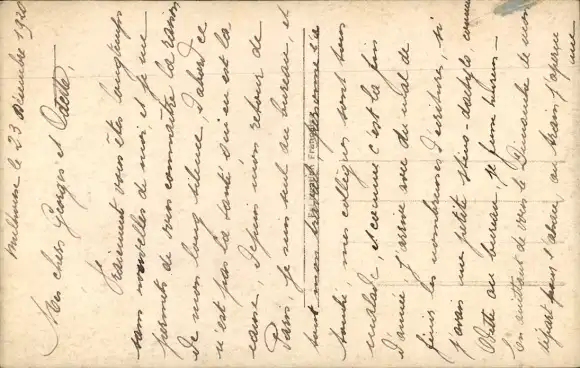 Mulhouse le 23 Décembre 1920
Mes chers Georges et Odette,
Vraiment vous êtes longtemps
sans nouvelles de moi, et je me
permets de vous connaître la raison
de mon long silence, d'abord ce
n'est pas la santé qui en est la
cause, depuis mon retour de
Paris, je suis seul au bureau, et
tout mon travail
tombe, mes collègues sont tous
malade, et comme c'est la fin
d'année j'arrive avec du mal de
finir les nombreuses d'écriture, si
j'avais une petite sténo-dactylo, comme
Odette au bureau, je serai heureux
En quittant de vous le Dimanche de mon
départ pour l'Alsace, au train j'aperçu
une